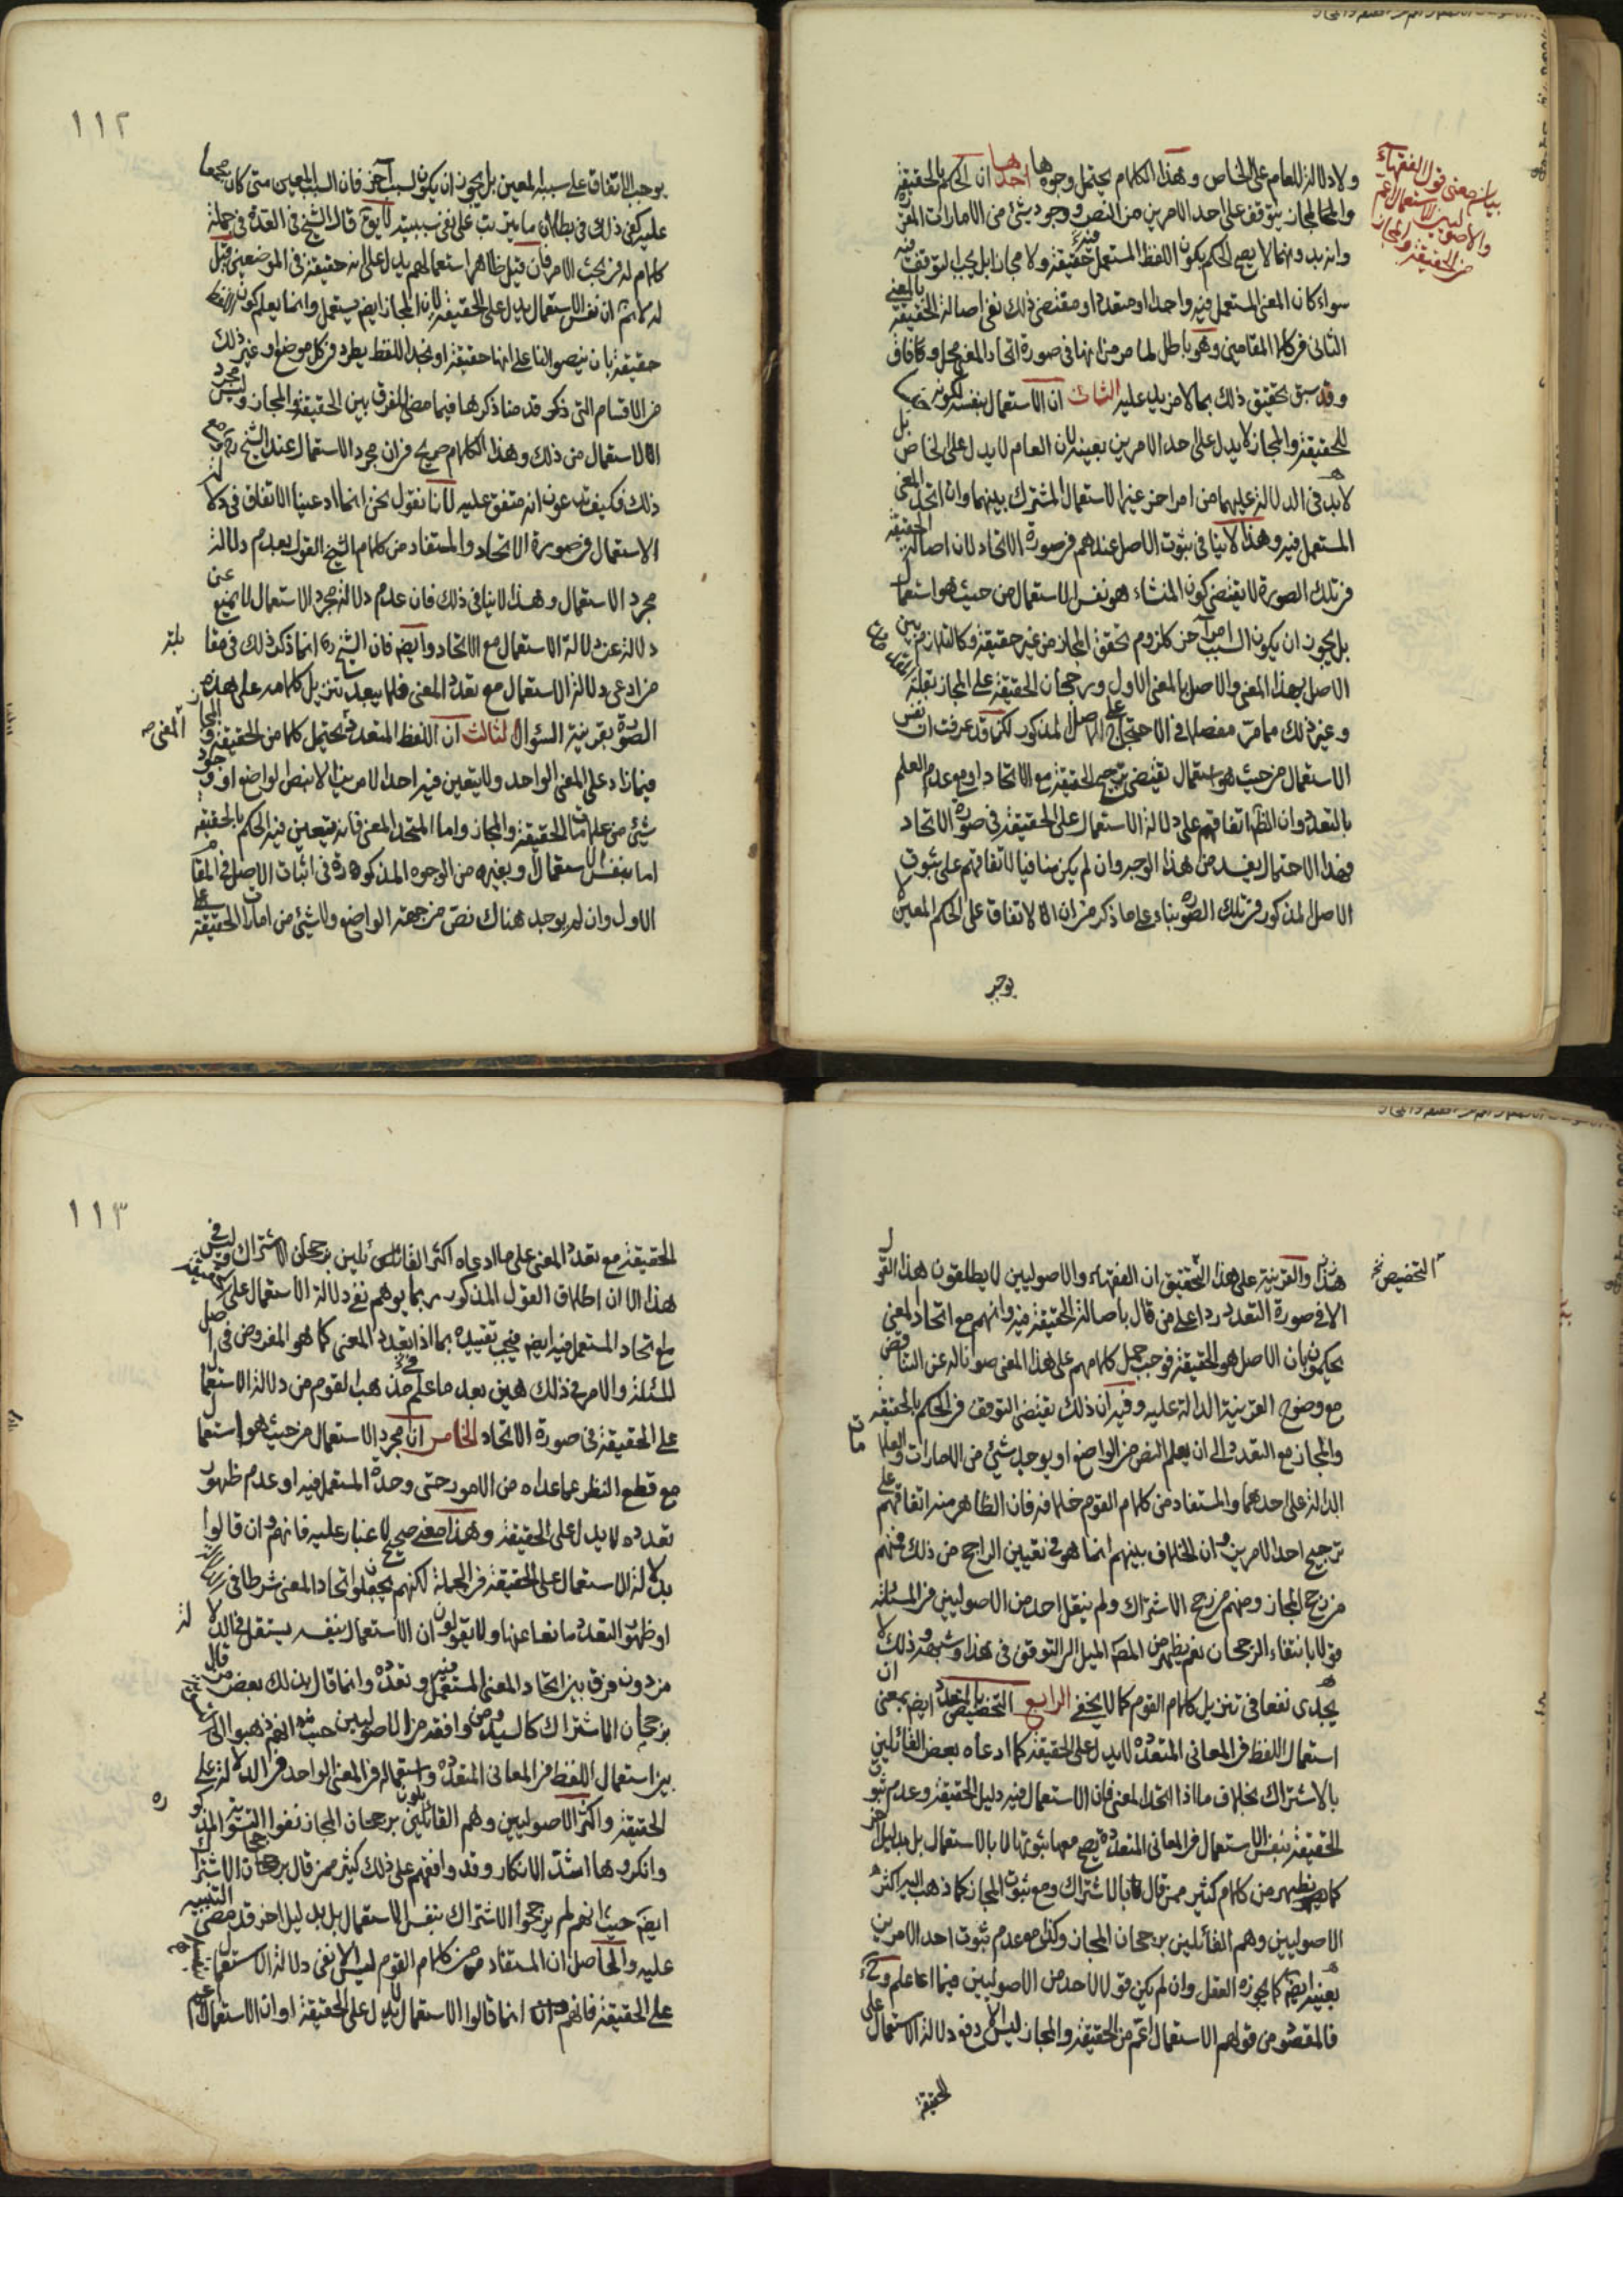 ولا دلالة للعام على الخاص وهذا الكلام يحتمل وجوها احدها ان الحكم بالحقيقة
والمجاز يتوقف على احد الامرين من النص ووجود شئ من الامارات المقررة
وانه بدونهما لا يصح الحكم بكون اللفظ المستعمل فيه حقيقة ولا مجازا بل يجب التوقف فيه
سواء كان المعنى المستعمل فيه واحدا او متعددا ومقتضى ذلك نفى اصالة الحقيقة بالمعنى
الثانى فى كلا المقامين وهو باطل لما مر من انها فى صورة اتحاد المعنى محل وفاق
وقد سبق تحقيق ذلك بما لا مزيد عليه الثانى ان الاستعمال بنفسه لكونه
للحقيقة والمجاز لا يدل على احد الامرين بعينه لان العام لا يدل على الخاص بل
لا بد فى الدلالة عليهما من امر اخر غير الاستعمال المشترك بينهما وان اتحد المعنى
المستعمل فيه وهذا لا ينافى ثبوت الاصل عندهم فى صورة الاتحاد لان اصالة الحقيقة
فى تلك الصورة لا يقتضى كون المنشاء هو نفس الاستعمال من حيث هو استعمال
بل يجوز ان يكون السبب امرا آخر كلزوم تحقق المجاز من غير حقيقة وكالتلازم بين
الاصل بهذا المعنى والاصل بالمعنى الاول ورجحان الحقيقة على المجاز بقلة
وغير ذلك مما مر مفصلا فى الاحتجاج على الاصل المذكور لكن قد عرفت ان نفس
الاستعمال من حيث هو استعمال يقتضى ترجيح الحقيقة مع الاتحاد او مع عدم العلم
بالتعدد وان الظ اتفاقهم على دلالة الاستعمال على الحقيقة فى صورة الاتحاد
فهذا الاحتمال بعيد من هذا الوجه وان لم يكن منافيا لاتفاقهم على ثبوت
الاصل المذكور فى تلك الصورة بناء على ما ذكر من ان الاتفاق على الحكم المعين لا
يوجب
بيان معنى قول الفقهاء
والاصوليين الاستعمال اعم
من الحقيقة والمجاز
١١٢
يوجب الاتفاق على سببه المعين بل يجوز ان يكون لسبب آخر فان السبب المعين متى كان مجمعا
عليه كفى ذلك فى بطلان ما يترتب على نفى سببيته لا يق قال الشيخ فى العدة فى جملة
كلام له فى بحث الامر فان قيل ظاهر استعمالهم يدل على انه حقيقة فى الموضعين قيل
له لا نم ان نفس الاستعمال يدل على الحقيقة لان المجاز ايضا يستعمل وانما يعلم كون اللفظ
حقيقة بان ينصوا لنا على انها حقيقة او نجد اللفظ يطرد فى كل موضع او غير ذلك
من الاقسام التى ذكرو قدمنا ذكرها فيما مضى للفرق بين الحقيقة والمجاز وليس مجرد
الاستعمال من ذلك وهذا الكلام صريح فى ان مجرد الاستعمال عند الشيخ
ذلك فكيف تدعون انه متفق عليه لانا نقول نحن انما ادعينا الاتفاق فى دلالة
الاستعمال فى صورة الاتحاد والمستفاد من كلام الشيخ القول بعدم دلالة
مجرد الاستعمال وهذا لا ينافى ذلك فان عدم دلالة مجرد الاستعمال لا يمنع عن
دلالة الاستعمال مع الاتحاد وايضم فان الشيخ ره انما ذكر ذلك فى مقابلة
من ادعى دلالة الاستعمال مع تعدد المعنى فلا يبعد تنزيل كلامه على هذه
الصورة بقرينة السؤال الثالث ان اللفظ المتعدد المعنى يحتمل كلا من الحقيقة والمجاز
فيما زاد على المعنى الواحد ولا يتعين فيه احد الامرين الا بنص لواضع او وجود
شئ من علامات الحقيقة والمجاز واما المتحد المعنى فانه يتعين فيه الحكم بالحقيقة
اما بنفس الاستعمال او بغيره من الوجوه المذكورة فى اثبات الاصل فى المقام
الاول وان لم يوجد هناك نص من جهة الواضع ولا شئ من امارات الحقيقة على
هذا والقرينة على هذا التحقيق ان الفقهاء والاصوليين لا يطلقون هذا القول
الا فى صورة التعدد ردا على من قال باصالة الحقيقة فيه وانهم مع اتحاد المعنى
يحكمون بان الاصل هو الحقيقة فوجب حمل كلامهم على هذا المعنى صونا له عن التناقض
مع وضوح القرينة الدالة عليه وفيه ان ذلك يقتضى التوقف فى الحكم بالحقيقة
والمجاز مع التعدد الى ان يعلم النص من الواضع او يوجد شئ من الامارات والعلامات
الدالة على احدهما والمستفاد من كلام القوم خلافه فان الظاهر منه اتفاقهم على
ترجيح احد الامرين وان الخلاف بينهم انما هو فى تعيين الراجح من ذلك فمنهم
من رجح المجاز ومنهم من رجح الاشتراك ولم ينقل احد من الاصوليين فى المسئلة
قولا بانتفاء الرجحان نعم يظهر من المصـ الميل الى التوقف فى هذا وشبهه وذلك لا
يجدى نفعا فى تنزيل كلام القوم كما لا يخفى الرابع التخصيص بالتعدد ايضم بمعنى ان
استعمال اللفظ فى المعانى المتعددة لا يدل على الحقيقة كما ادعاه بعض القائلين
بالاشتراك بخلاف ما اذا اتحد المعنى فان الاستعمال فيه دليل الحقيقة وعدم ثبوت
الحقيقة بنفس الاستعمال فى المعانى المتعددة يصح معه ثبوتها لا بالاستعمال بل بدليل اخر
كما يظهر من كلام كثير ممن قال بالاشتراك ومع ثبوت المجاز كما ذهب اليه اكثر
الاصوليين وهم القائلين برجحان المجاز وكذا مع عدم ثبوت احد الامرين
بعينه ايضم كما يجوزه العقل وان لم يكن قولا لاحد من الاصوليين فيما علم وح
فالمقصود من قولهم الاستعمال اعم من الحقيقة والمجاز ليس الا دفع دلالة الاستعمال على
الحقيقة
التخصيص
١١٣
الحقيقة مع تعدد المعنى على ما ادعاه اكثر القائلين برجحان الاشتراك وليس فى
هذا الا ان اطلاق القول المذكور ربما يوهم نفى دلالة الاستعمال على الحقيقة
مع اتحاد المستعمل فيه ايضم فيجب تقييده بما اذا تعدد المعنى كما هو المفروض فى اصل
المسئلة والامر فى ذلك هين بعد ما علم من مذهب القوم من دلالة الاستعمال
على الحقيقة فى صورة الاتحاد الخامس ان مجرد الاستعمال من حيث هو استعمال
مع قطع النظر عما عداه من الامور حتى وحدة المستعمل فيه او عدم ظهور
تعدده لا يدل على الحقيقة وهذا معنى صحيح لا غبار عليه فانهم وان قالوا
بدلالة الاستعمال على الحقيقة فى الجملة لكنهم يجعلون اتحاد المعنى شرطا فى
او ظهور التعدد مانعا عنها ولا يقولون ان الاستعمال بنفسه يستقل فى الدلالة
من دون فرق بين اتحاد المعنى المستعمل فيه وتعدده وانما قال بذلك بعض من قال
برجحان الاشتراك كالسيد ومن وافقه من الاصوليين حيث انهم ذهبوا الى
بين استعمال اللفظ فى المعانى المتعددة واستعماله فى المعنى الواحد فى الدلالة على
الحقيقة واكثر الاصوليين وهم القائلون برجحان المجاز نفوا التسوية المذكورة
وانكروها اشد الانكار وقد وافقهم على ذلك كثير ممن قال برجحان الاشتراك
ايضم حيث انهم لم يرجحوا الاشتراك بنفس الاستعمال بل بدليل اخر قد مضى التنبيه
عليه والحاصل ان المستفاد من كلام القوم ليس الا نفى دلالة الاستعمال
على الحقيقة فانهم انما قالوا الاستعمال لا يدل على الحقيقة او ان الاستعمال اعم